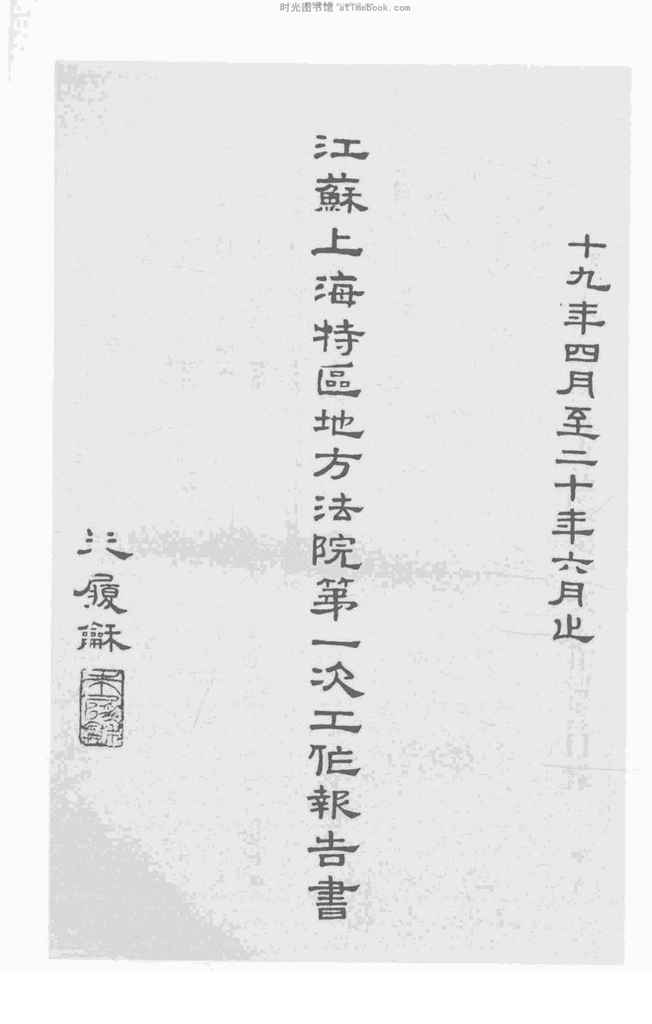 时光图书馆 atTimeBook.com
十九年四月至二十年六月止
江蘇上海特區地方法院第一次工作報告書
履龢